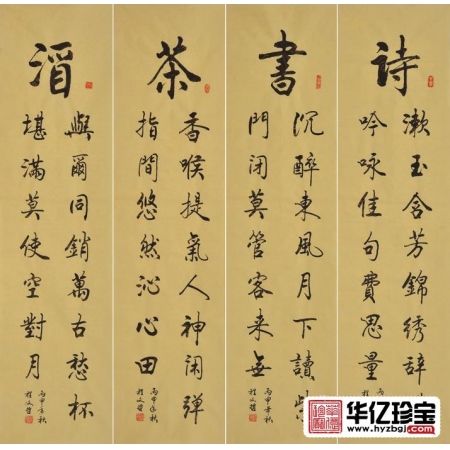 詩
漱玉含芳錦绣辞
吟咏佳句費思量
書
沉醉東風月下讀柴
門闭莫管客来無
丙申年秋
茶
香喉提氣人神闲弹
指間悠然沁心田
丙申年秋
酒
與爾同銷萬古愁杯
堪滿莫使空對月
丙申年秋
华亿珍宝
www.hyzbgj.com